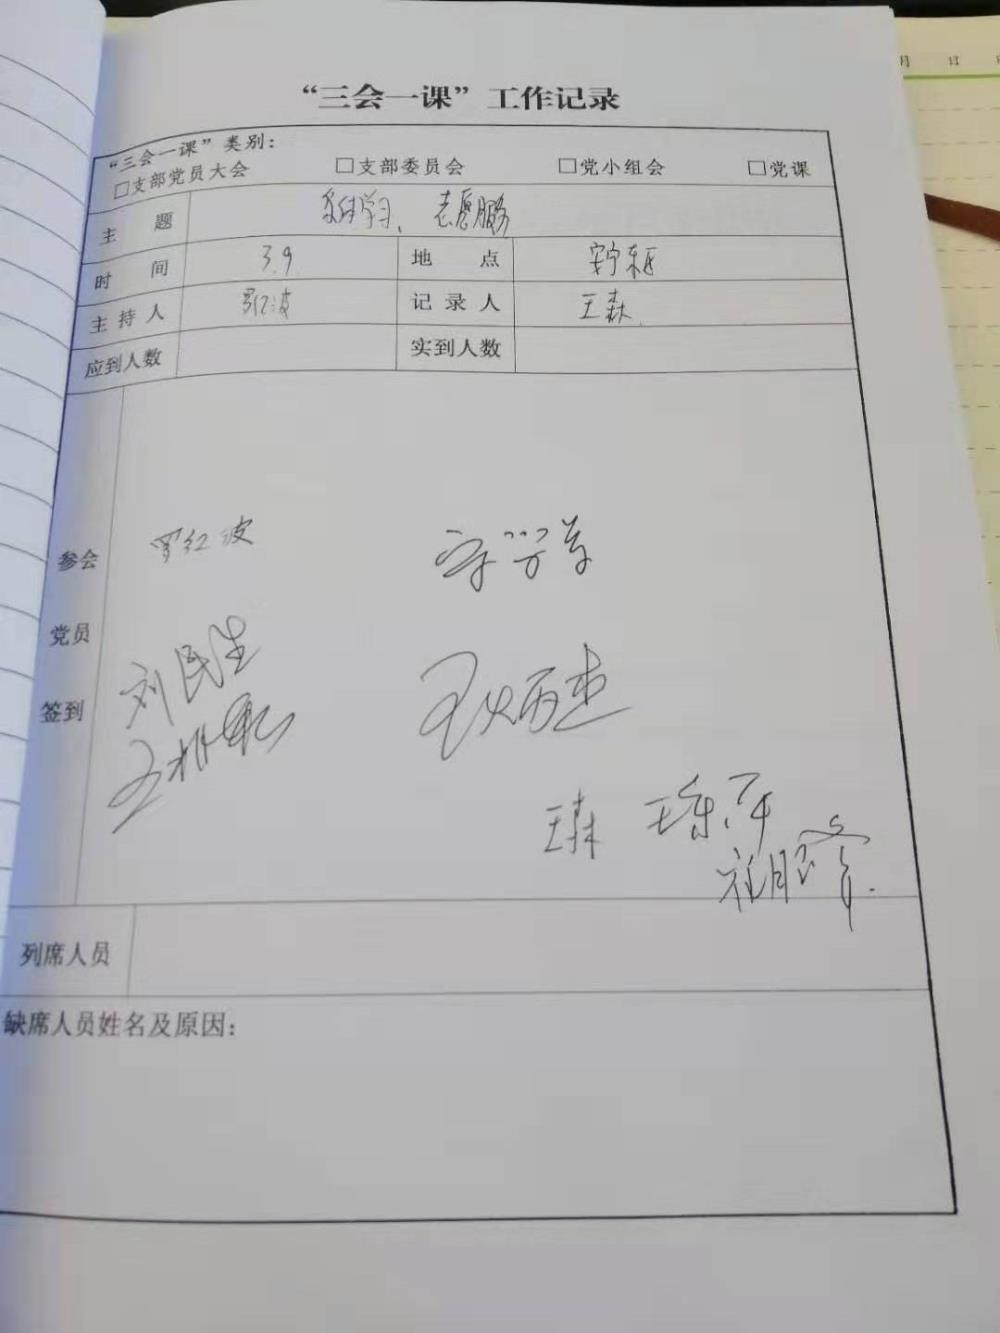 “三会一课”工作记录
“三会一课”类别：
□支部党员大会 □支部委员会 □党小组会 □党课
主题 学习、志愿服务
时间 3.9 地点
主持人 罗红波 记录人 王森
应到人数 实到人数
罗红波
参会
党员
刘民生
签到
王森
列席人员
缺席人员姓名及原因：
月 日